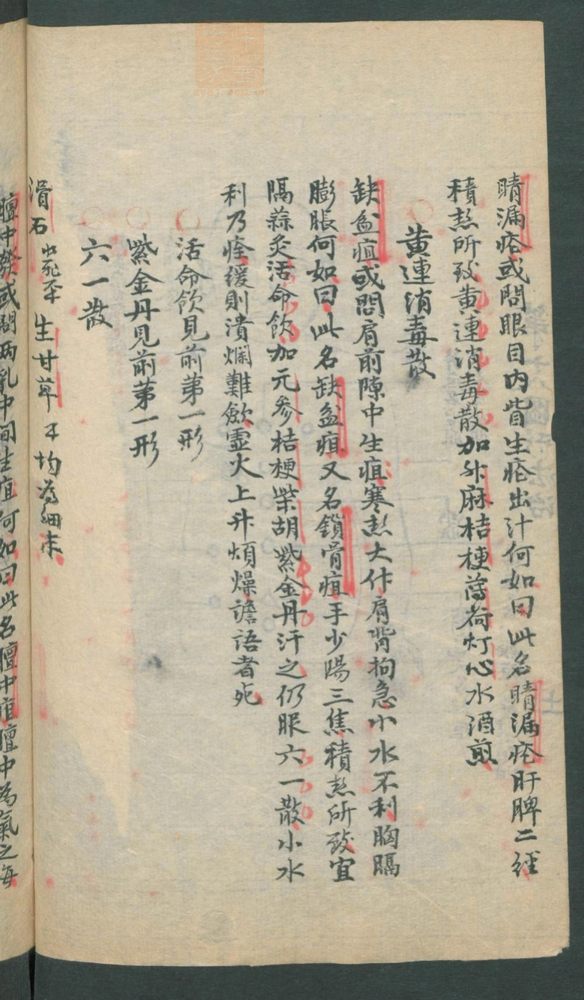 睛漏疮或問眼目内眥生疮出汁何如曰此名睛漏疮肝脾二經
積热所致黄連消毒散加升麻桔梗薄荷灯心水酒煎
黄連消毒散
缺盆疽或問肩前隙中生疽寒热大作肩背拘急小水不利胸膈
膨脹何如曰此名缺盆疽又名鎖骨疽手少陽三焦積热所致宜
隔蒜灸活命飲加元参桔梗柴胡紫金丹汗之仍服六一散小水
利乃痊緩則潰爛難斂灵火上升煩燥譫語者死
活命飲見前第一形
紫金丹見前第一形
六一散
滑石 生甘草 均為細末
膻中發或問两乳中间生疽何如曰此名膻中疽膻中為氣之海